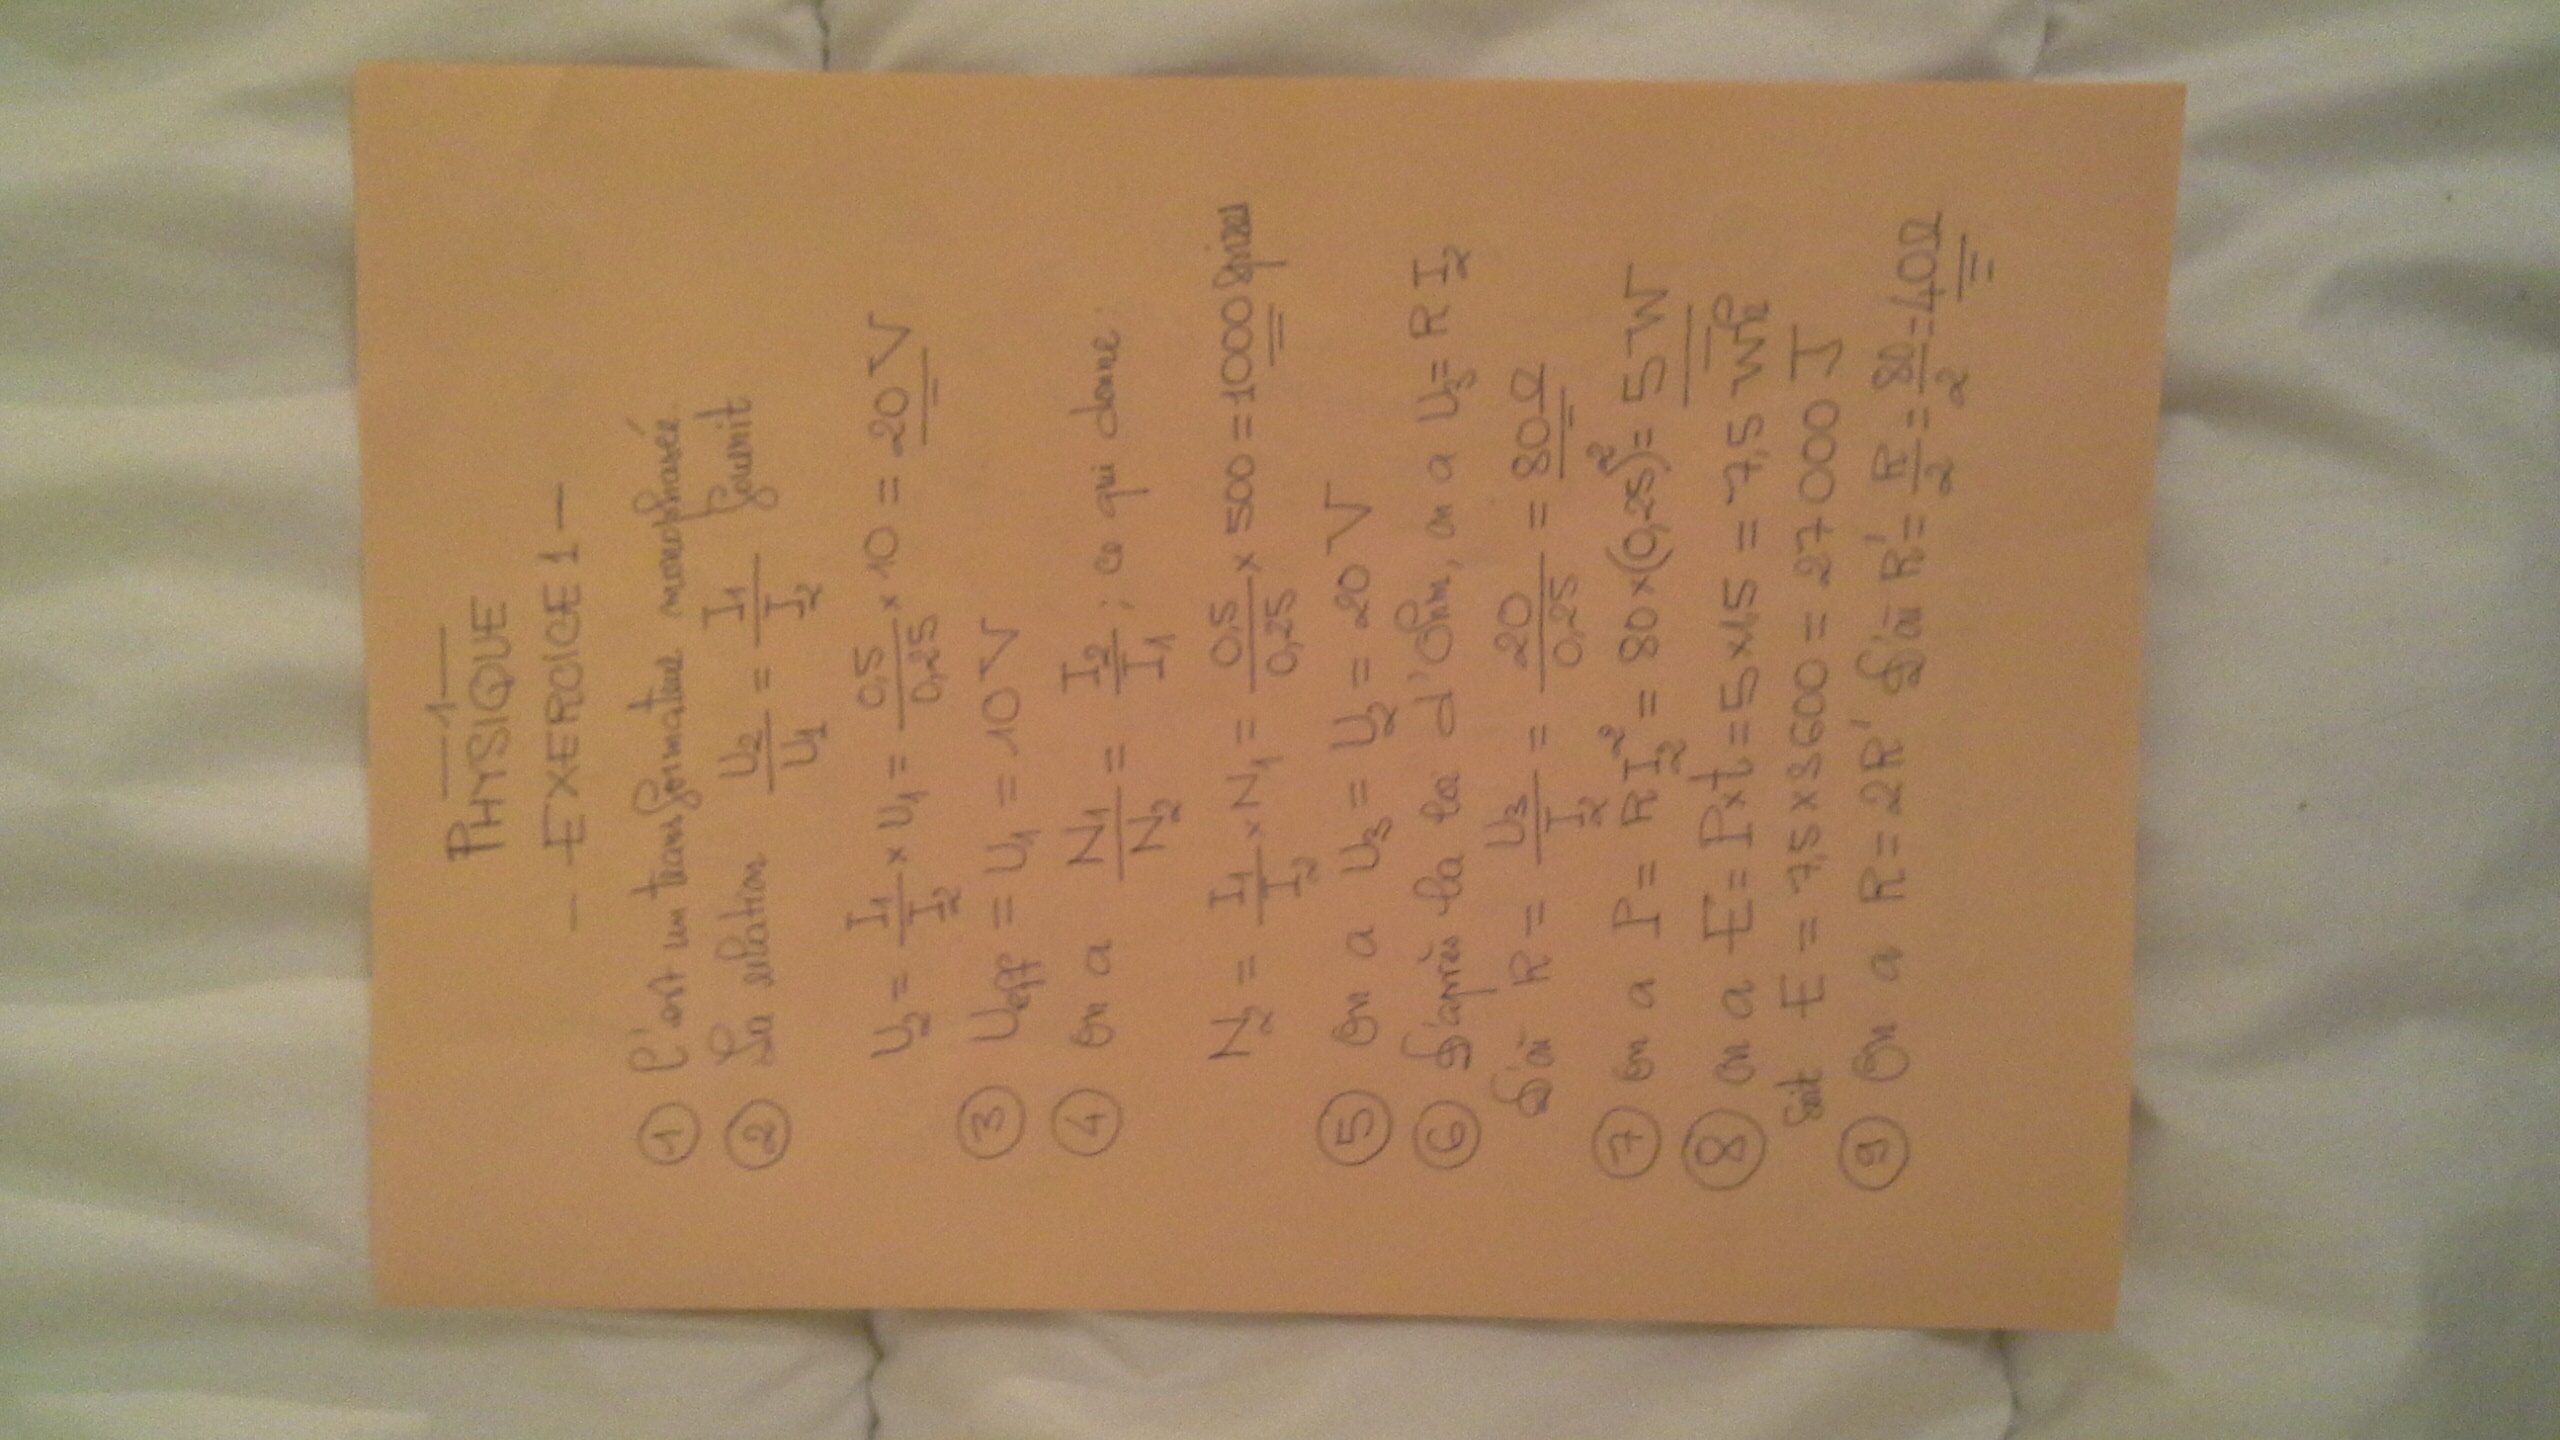 —1—
PHYSIQUE
— EXERCICE 1 —
① C'est un transformateur monophasé.
② La relation U₂/U₁ = I₁/I₂ fournit
U₂ = I₁/I₂ × U₁ = 0,5/0,25 × 10 = 20 V
③ Ueff = U₁ = 10 V
④ On a N₁/N₂ = I₂/I₁ ; ce qui donne :
N₂ = I₁/I₂ × N₁ = 0,5/0,25 × 500 = 1000 spires
⑤ On a U₃ = U₂ = 20 V
⑥ D'après la loi d'Ohm, on a U₃ = R I₂
D'où R = U₃/I₂ = 20/0,25 = 80 Ω
⑦ On a P = R I₂² = 80 × (0,25)² = 5 W
⑧ On a E = P × t = 5 × 1,5 = 7,5 Wh
Soit E = 7,5 × 3600 = 27 000 J
⑨ On a R = 2R' D'où R' = R/2 = 80/2 = 40 Ω